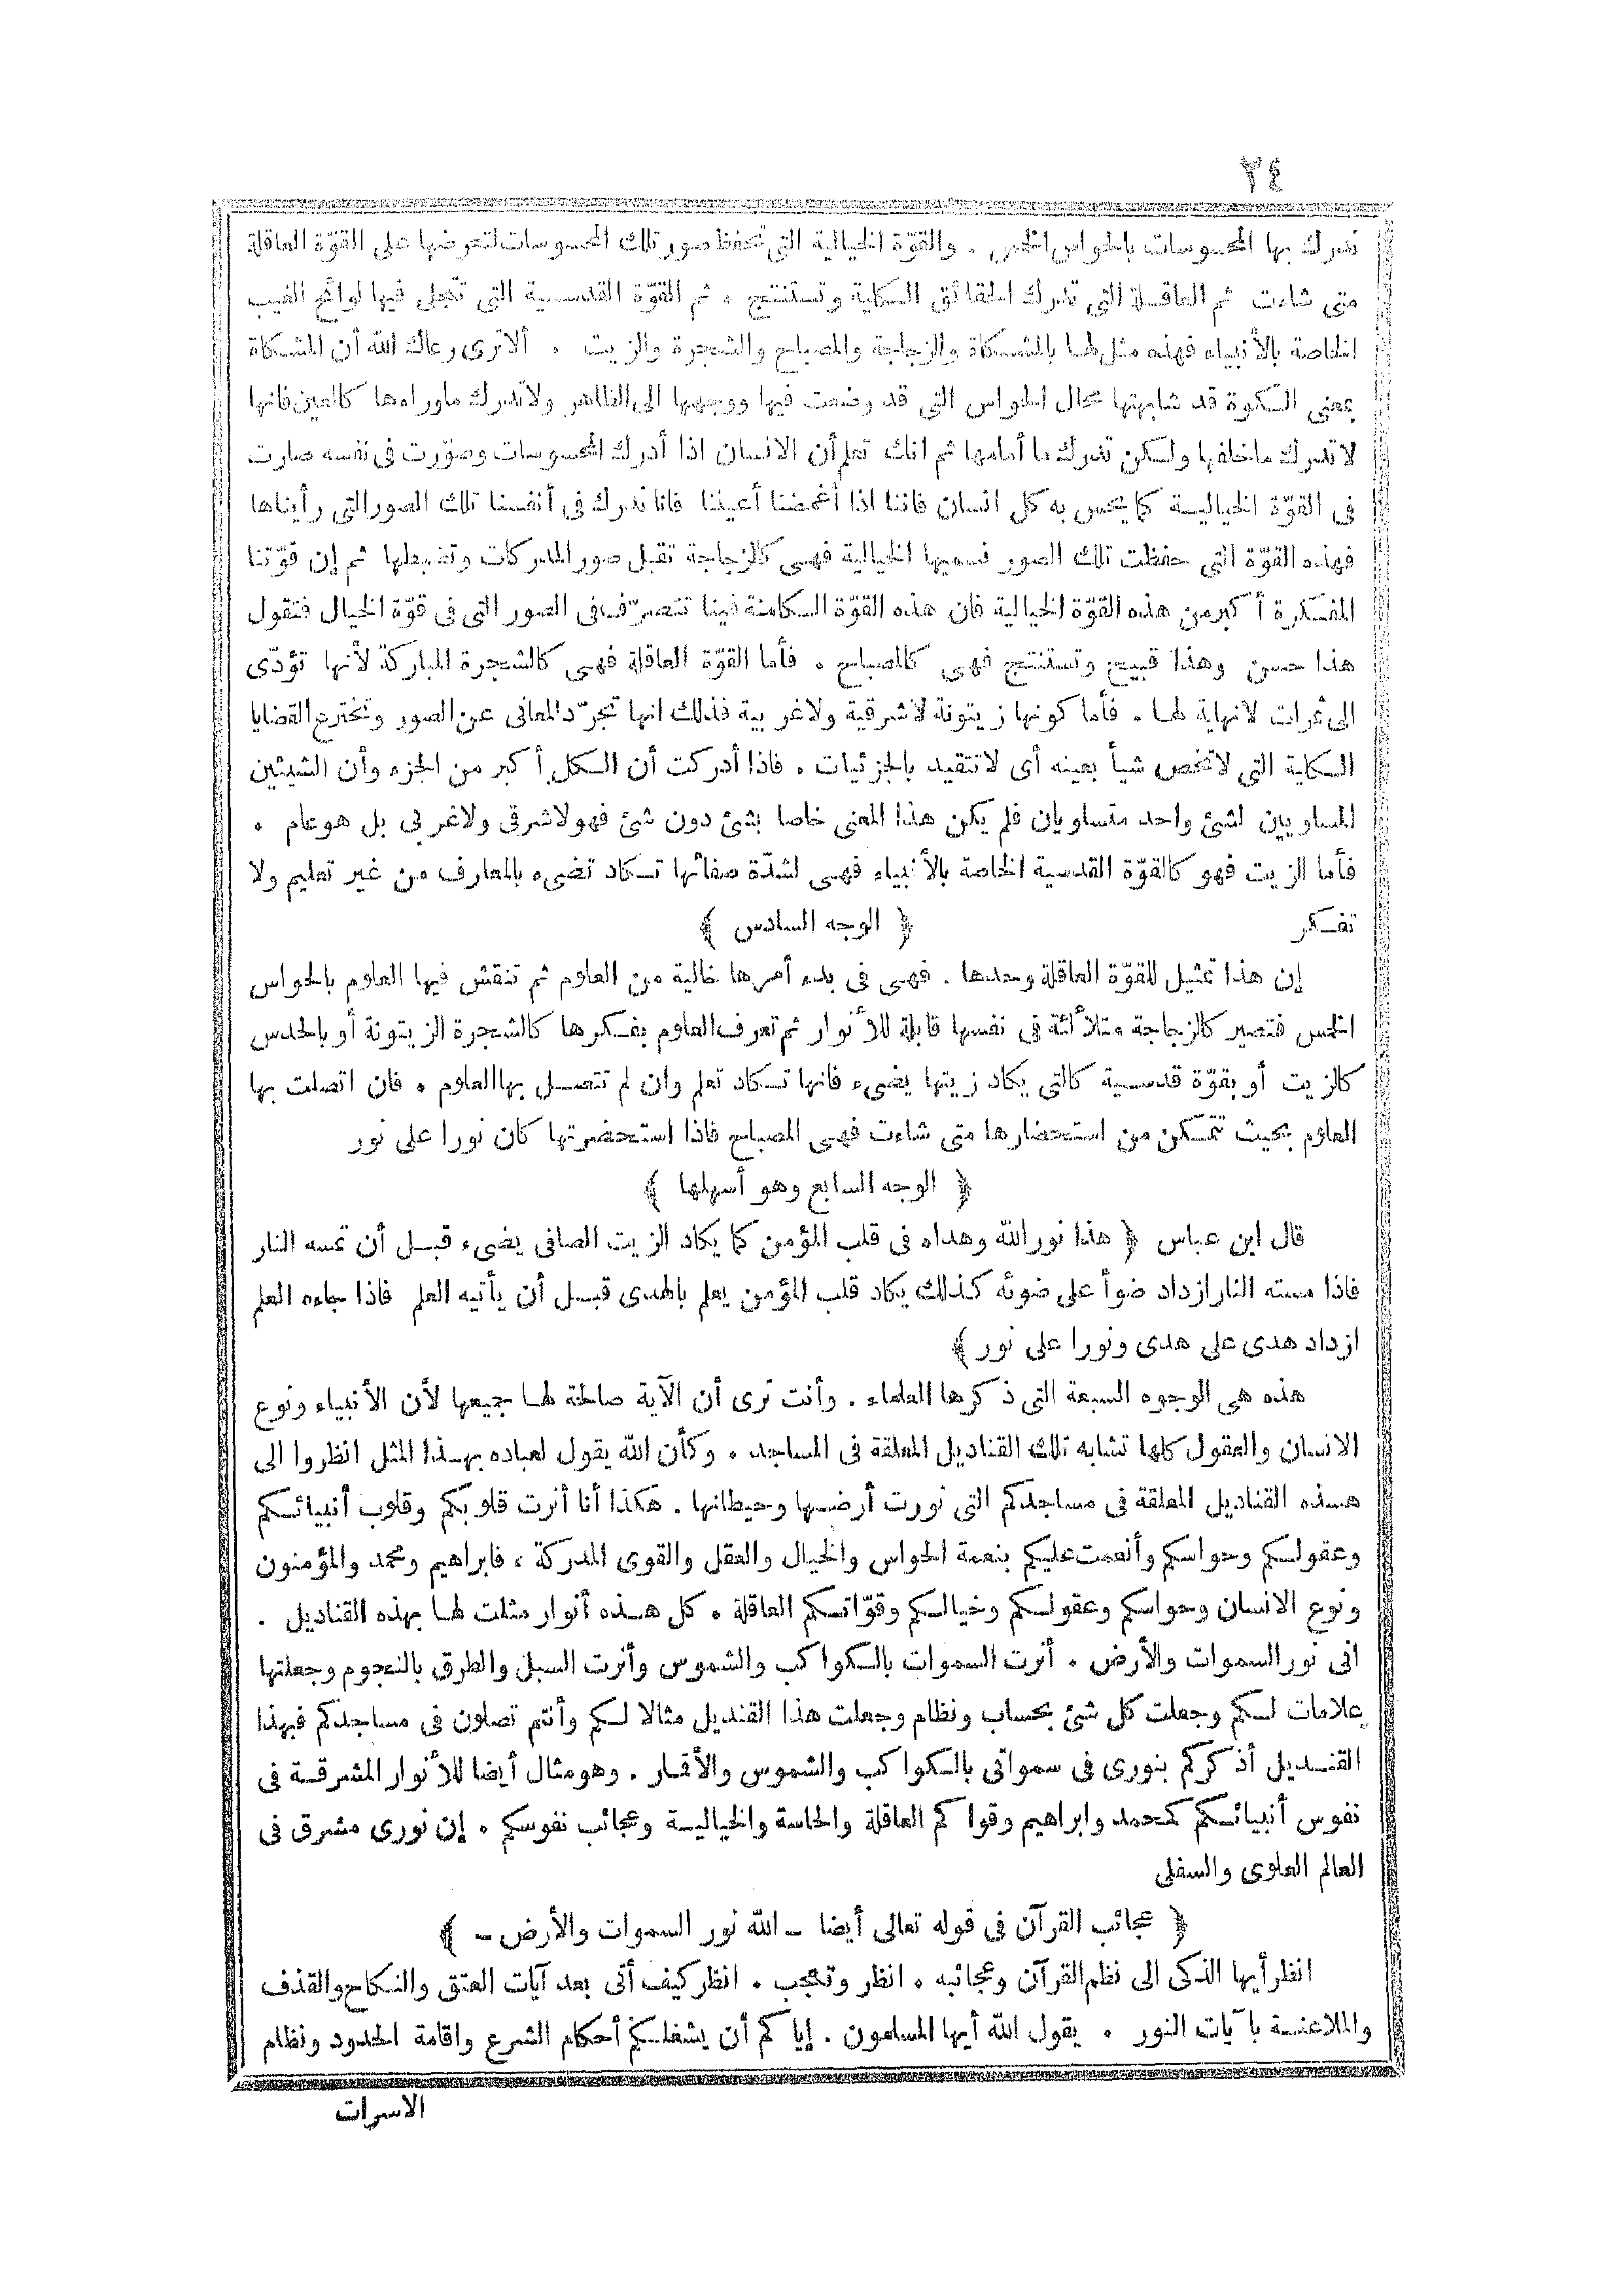 ٢٤
تدرك بها المحسوسات بالحواس الخمس . والقوّة الخيالية التى تحفظ صور تلك المحسوسات لتعرضها على القوّة العاقلة
متى شاءت ثم العاقلة التى تدرك الحقائق الكلية وتستنتج . ثم القوّة القدسية التى تتجلى فيها لوائح الغيب
الخاصة بالأنبياء فهذه مثل لها بالمشكاة والزجاجة والمصباح والشجرة والزيت . ألا ترى رعاك الله أن المشكاة
بمعنى الكوة قد شابهتها محال الحواس التى قد وضعت فيها ووجهها الى الظاهر ولا تدرك ما وراءها كالعين فانها
لا تدرك ما خلفها ولكن تدرك ما أمامها ثم انك تعلم أن الانسان اذا أدرك المحسوسات وصوّرت فى نفسه صارت
فى القوّة الخيالية كما يحس به كل انسان فاننا اذا أغمضنا أعيننا فانا ندرك فى أنفسنا تلك الصور التى رأيناها
فهذه القوّة التى حفظت تلك الصور نسميها الخيالية فهى كالزجاجة تقبل صور المدركات وتضبطها ثم إن قوّتنا
المفكرة أكبر من هذه القوّة الخيالية فان هذه القوّة الكامنة فينا تتصرّف فى الصور التى فى قوّة الخيال فتقول
هذا حسن وهذا قبيح وتستنتج فهى كالمصباح . فأما القوّة العاقلة فهى كالشجرة المباركة لأنها تؤدّى
الى ثمرات لانهاية لها . فأما كونها زيتونة لا شرقية ولا غربية فذلك انها تجرّد المعانى عن الصور وتخترع القضايا
الكلية التى لا تخص شيأ بعينه أى لا تتقيد بالجزئيات . فاذا أدركت أن الكل أكبر من الجزء وأن الشيئين
المساويين لشئ واحد متساويان فلم يكن هذا المعنى خاصا بشئ دون شئ فهو لا شرقى ولا غربى بل هو عام .
فأما الزيت فهو كالقوّة القدسية الخاصة بالأنبياء فهى لشدّة صفائها تكاد تضىء بالمعارف من غير تعليم ولا
تفكر
﴿ الوجه السادس ﴾
إن هذا تمثيل للقوّة العاقلة وحدها . فهى فى بدء أمرها خالية من العلوم ثم تنقش فيها العلوم بالحواس
الخمس فتصير كالزجاجة متلألئة فى نفسها قابلة للأنوار ثم تعرف العلوم بفكرها كالشجرة الزيتونة أو بالحدس
كالزيت أو بقوّة قدسية كالتى يكاد زيتها يضىء فانها تكاد تعلم وان لم تتصل بها العلوم . فان اتصلت بها
العلوم بحيث تتمكن من استحضارها متى شاءت فهى المصباح فاذا استحضرتها كان نورا على نور
﴿ الوجه السابع وهو أسهلها ﴾
قال ابن عباس ﴿ هذا نور الله وهداه فى قلب المؤمن كما يكاد الزيت الصافى يضىء قبل أن تمسه النار
فاذا مسته النار ازداد ضوأ على ضوئه كذلك يكاد قلب المؤمن يعلم بالهدى قبل أن يأتيه العلم فاذا جاءه العلم
ازداد هدى على هدى ونورا على نور ﴾
هذه هى الوجوه السبعة التى ذكرها العلماء . وأنت ترى أن الآية صالحة لها جميعها لأن الأنبياء ونوع
الانسان والعقول كلها تشابه تلك القناديل المعلقة فى المساجد . وكأن الله يقول لعباده بهذا المثل انظروا الى
هذه القناديل المعلقة فى مساجدكم التى نورت أرضها وحيطانها . هكذا أنا أنرت قلوبكم وقلوب أنبيائكم
وعقولكم وحواسكم وأنعمت عليكم بنعمة الحواس والخيال والعقل والقوى المدركة ، فابراهيم ومحمد والمؤمنون
ونوع الانسان وحواسكم وعقولكم وخيالكم وقوّاتكم العاقلة . كل هذه أنوار مثلت لها بهذه القناديل .
انى نور السموات والأرض . أنرت السموات بالكواكب والشموس وأنرت السبل والطرق بالنجوم وجعلتها
علامات لكم وجعلت كل شئ بحساب ونظام وجعلت هذا القنديل مثالا لكم وأنتم تصلون فى مساجدكم فبهذا
القنديل أذكركم بنورى فى سمواتى بالكواكب والشموس والأقمار . وهو مثال أيضا للأنوار المشرقة فى
نفوس أنبيائكم كمحمد وابراهيم وقواكم العاقلة والحاسة والخيالية وعجائب نفوسكم . إن نورى مشرق فى
العالم العلوى والسفلى
﴿ عجائب القرآن فى قوله تعالى أيضا - الله نور السموات والأرض - ﴾
انظر أيها الذكى الى نظم القرآن وعجائبه . انظر وتعجب . انظر كيف أتى بعد آيات العتق والنكاح والقذف
والملاعنة بآيات النور . يقول الله أيها المسلمون . إياكم أن يشغلكم أحكام الشرع واقامة الحدود ونظام
الاسرات